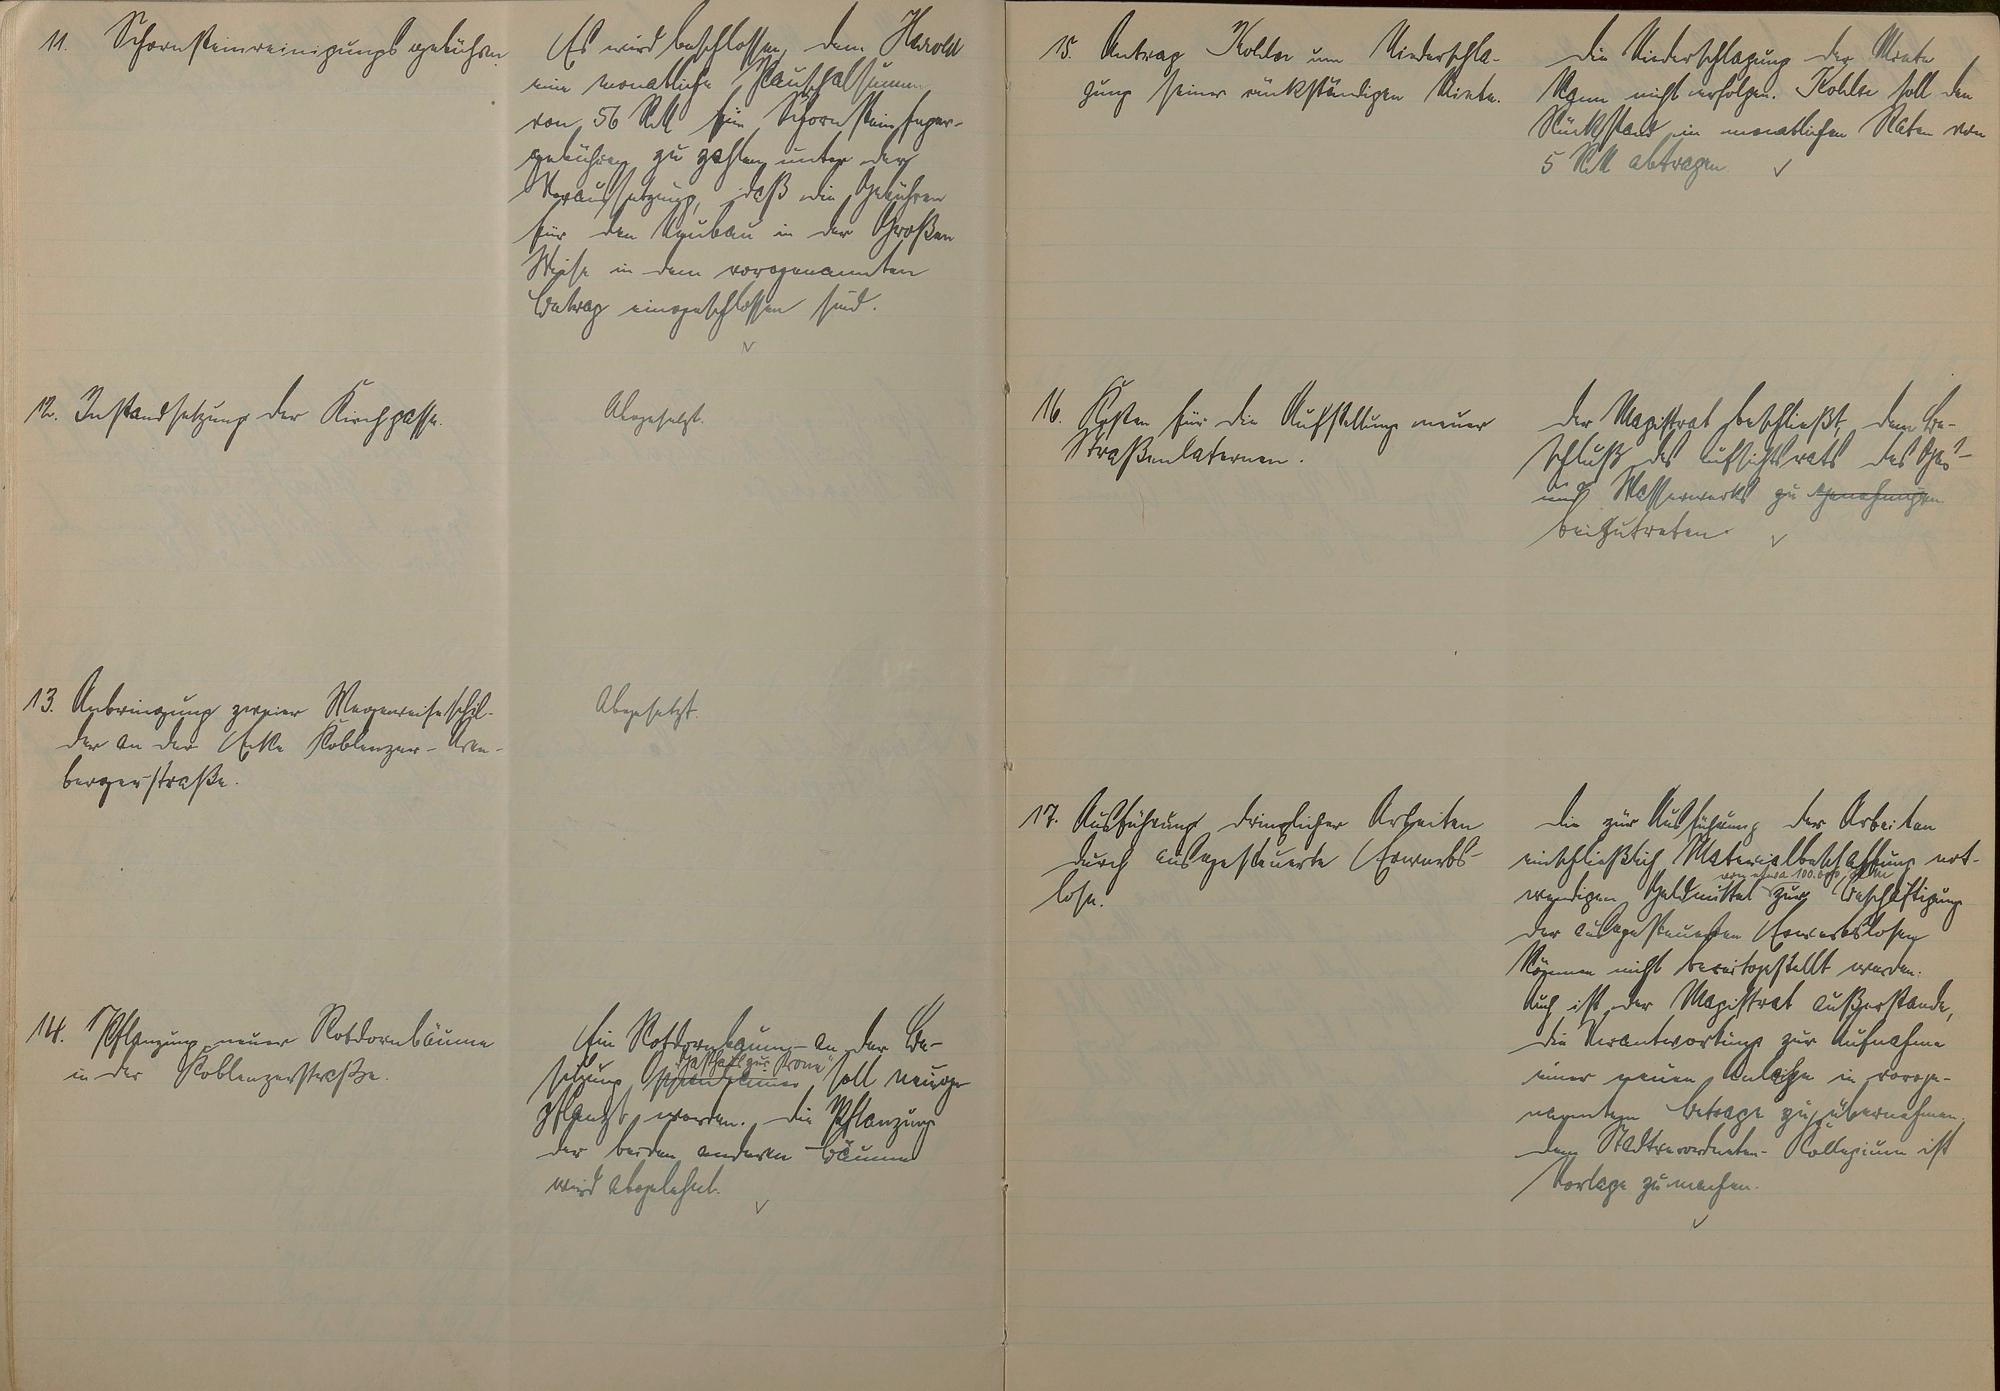 11. Schornsteinreinigungsgebühren
Es wird beschlossen, dem Harold
eine monatliche Pauschalsumme
von 56 RM für Schornsteinfeger-
gebühren zu zahlen unter der
Voraussetzung, daß die Gebühren
für den Neubau in der Großen
Wiese in dem vorgenannten
Betrag eingeschlossen sind.
12. Instandsetzung der Kirchgasse.
Abgesetzt.
13. Anbringung zweier Wegweiseschil-
der an der Ecke Koblenzer- Aren-
bergerstraße.
Abgesetzt.
14. Pflanzung neuer Rotdornbäume
in der Koblenzerstraße.
Ein Rotdornbaum an der Be-
"Gasthaus zur Krone"
sitzung soll neuge-
pflanzt werden. Die Pflanzung
der beiden anderen Bäume
wird abgelehnt.
15. Antrag Kohler um Niederschla-
gung seiner rückständigen Miete.
Die Niederschlagung der Miete
kann nicht erfolgen. Kohler soll den
Rückstand in monatlichen Raten von
5 RM abtragen
16. Kosten für die Aufstellung neuer
Straßenlaternen.
Der Magistrat beschließt, dem Be-
schluß des Aufsichtsrats des Gas-
und Wasserwerks zu genehmigen
beizutreten.
17. Ausführung dringlicher Arbeiten
durch ausgesteuerte Erwerbs-
lose.
Die zur Ausführung der Arbeiten
einschließlich Materialbeschaffung not-
von etwa 100.000,
wendigen Geldmittel zur Beschäftigung
der ausgesteuerten Erwerbslosen
können nicht bereitgestellt werden.
Auch ist der Magistrat außerstande,
die Verantwortung zur Aufnahme
einer neuen Anleihe in vorge-
nanntem Betrage zu übernehmen.
Dem Stadtverordneten-Collegium ist
Vorlage zu machen.